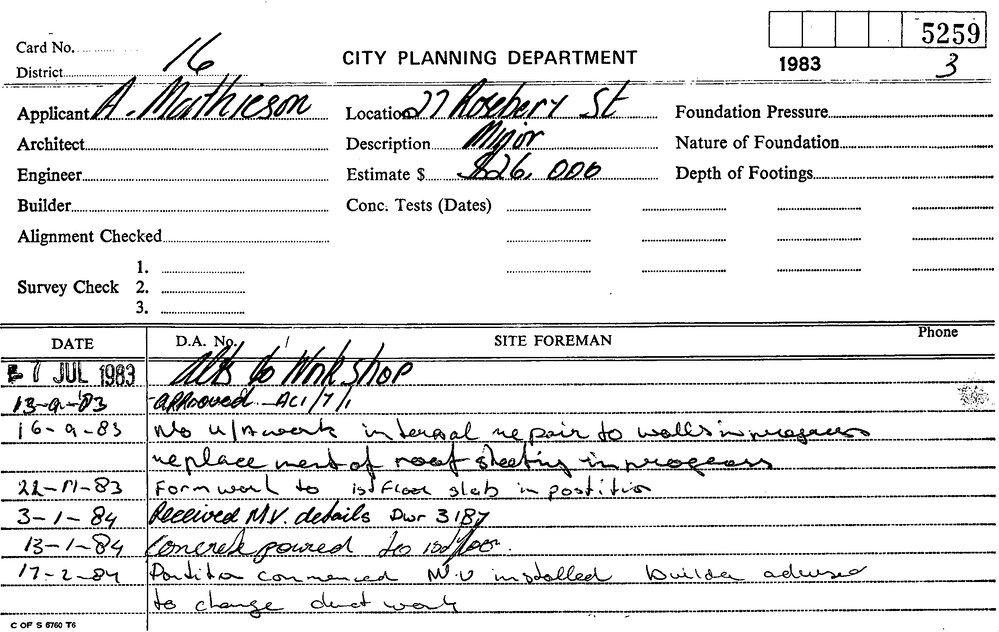 5259
Card No.
16
CITY PLANNING DEPARTMENT
1983
3
District
Applicant A. Mathieson
Location 27 Rosebery St
Foundation Pressure
Architect
Description Major
Nature of Foundation
Engineer
Estimate $ $26,000
Depth of Footings
Builder
Conc. Tests (Dates)
Alignment Checked
1.
Survey Check 2.
3.
DATE
D.A. No. /
SITE FOREMAN
Phone
7 JUL 1983 Alts to Workshop
13-9-83 Approved AC1/7/1
16-9-83 No U/A work internal repair to walls in progress
replacement of roof sheeting in progress
22-11-83 Formwork to 1st Floor slab in postition
3-1-84 Received M.V. details Dwr 3187
13-1-84 Concrete poured to 1st floor.
17-2-84 Partition commenced M.V installed builder advised
to change duct work
C OF S 6760 T6